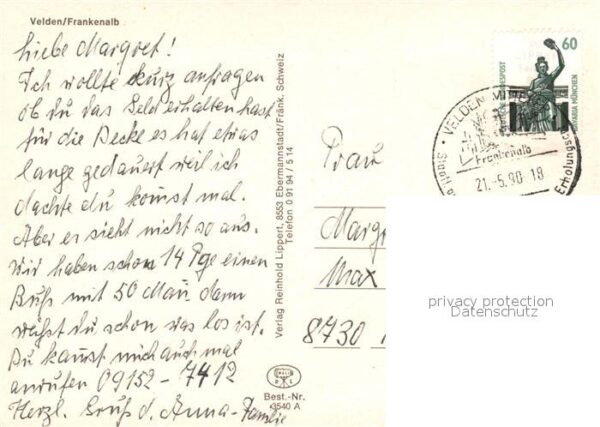 Velden/Frankenalb
Liebe Margret!
Ich wollte kurz anfragen
ob du das Geld erhalten hast
für die Decke es hat etwas
lange gedauert weil ich
dachte du komst mal.
Aber es sieht nicht so aus.
Wir haben schon 14 Tge einen
Buß mit 50 Mañ dann
weißt du schon was los ist.
Du kannst mich auch mal
anrufen 09152-7412
Herzl. Gruß d. Anna-Familie
Verlag Reinhold Lippert, 8553 Ebermannstadt/Fränk. Schweiz
Telefon 0 91 94 / 5 14
Best.-Nr.
3540 A
60
DEUTSCHE BUNDESPOST
BAVARIA MÜNCHEN
VELDEN, MITTELFR
Frankenalb
21.-5.90.18
Erholungso
Frau
Margr
Max
8730
privacy protection
Datenschutz